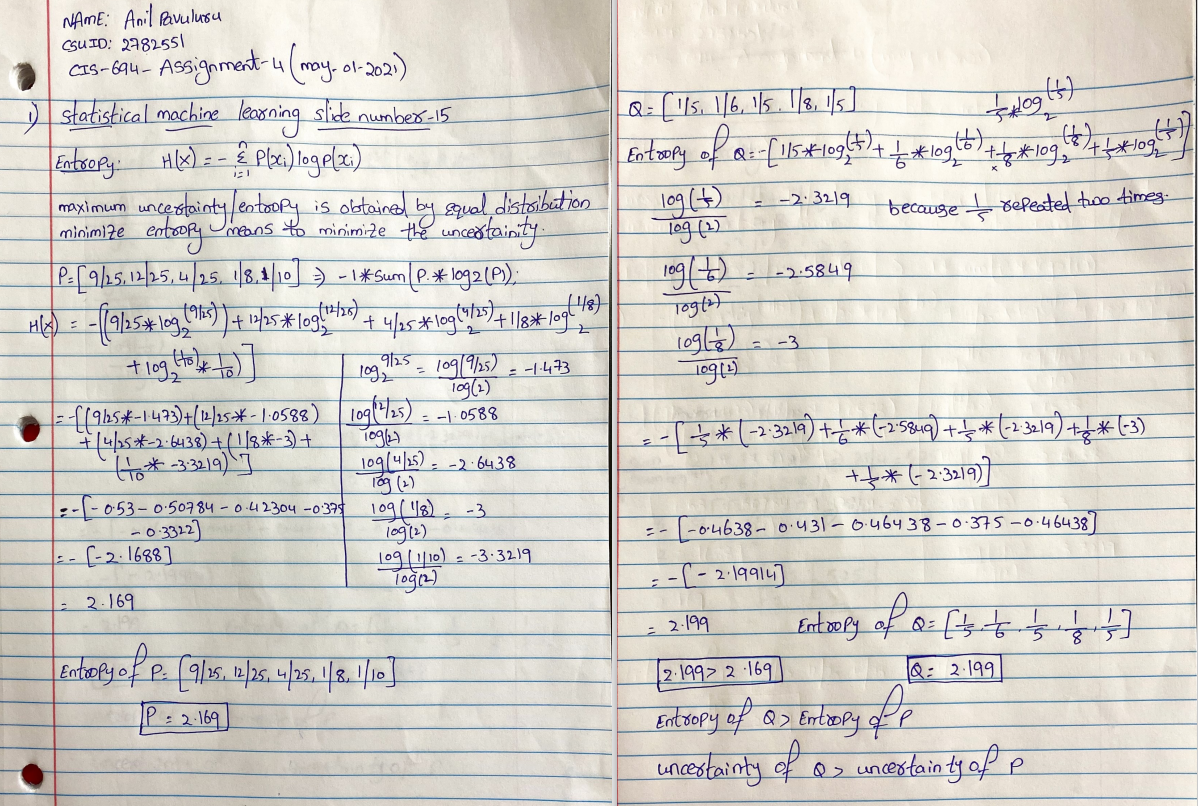 NAME: Anil Pavuluru
CSUID: 2782551
CIS-694- Assignment-4 (may-01-2021)
1) statistical machine learning slide number-15
Entropy: H(x) = - Σ_{i=1}^{n} P(xi) log p(xi)
maximum uncertainty/entropy is obtained by equal distribution
minimize entropy means to minimize the uncertainity.
P=[9/25,12/25,4/25,1/8,1/10] ⇒ -1*sum(P.*log2(P));
H(x) = -[(9/25*log_2^(9/25))+12/25*log_2^(12/25) + 4/25*log_2^(4/25)+1/8*log_2^(1/8)
+log_2^(1/10)*1/10)]
=-[(9/25*-1.473)+(12/25*-1.0588)
+(4/25*-2.6438)+(1/8*-3)+
(1/10*-3.3219)]
=-[-0.53-0.50784-0.42304-0.375
-0.3322]
=-[-2.1688]
= 2.169
log_2^9/25 = log(9/25)/log(2) = -1.473
log(12/25)/log(2) = -1.0588
log(4/25)/log(2) = -2.6438
log(1/8)/log(2) = -3
log(1/10)/log(2) = -3.3219
Entropy of P= [9/25, 12/25, 4/25, 1/8, 1/10]
P = 2.169
Q=[1/5, 1/6, 1/5, 1/8, 1/5]
1/5*log_2^(1/5)
Entropy of Q=-[1/5*log_2^(1/5)+1/6*log_2^(1/6)+1/8*log_2^(1/8)+1/5*log_2^(1/5)]
log(1/5)/log(2) = -2.3219 because 1/5 repeated two times.
log(1/6)/log(2) = -2.5849
log(1/8)/log(2) = -3
=-[1/5*(-2.3219)+1/6*(-2.5849)+1/5*(-2.3219)+1/8*(-3)
+1/5*(-2.3219)]
=-[-0.4638-0.431-0.46438-0.375-0.46438]
=-[-2.19914]
= 2.199 Entropy of Q=[1/5, 1/6, 1/5, 1/8, 1/5]
2.199> 2.169 Q= 2.199
Entropy of Q> Entropy of P
uncertainty of Q> uncertainty of P